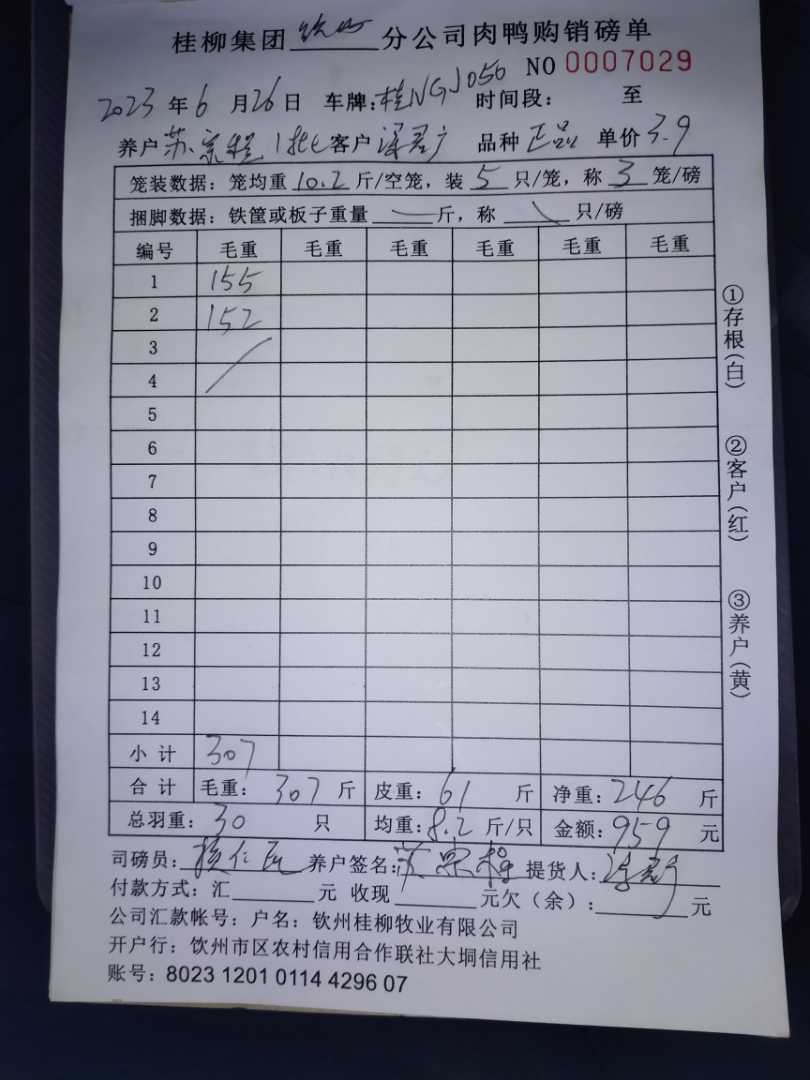 桂柳集团 钦州 分公司肉鸭购销磅单
NO 0007029
2023 年 6 月 26 日 车牌:桂NGJ050 时间段: 至
养户 苏宗程 1批 客户 品种 正品 单价 3.9
笼装数据: 笼均重 10.2 斤/空笼, 装 5 只/笼, 称 3 笼/磅
捆脚数据: 铁筐或板子重量 斤, 称 只/磅
编号 毛重 毛重 毛重 毛重 毛重 毛重
1 155
2 152
3
4
5
6
7
8
9
10
11
12
13
14
小 计 307
合 计 毛重: 307 斤 皮重: 61 斤 净重: 246 斤
总羽重: 30 只 均重: 8.2 斤/只 金额: 959 元
司磅员: 养户签名: 提货人:
付款方式: 汇 元 收现 元欠(余): 元
公司汇款帐号: 户名: 钦州桂柳牧业有限公司
开户行: 饮州市区农村信用合作联社大垌信用社
账号: 8023 1201 0114 4296 07
①存根(白)
②客户(红)
③养户(黄)